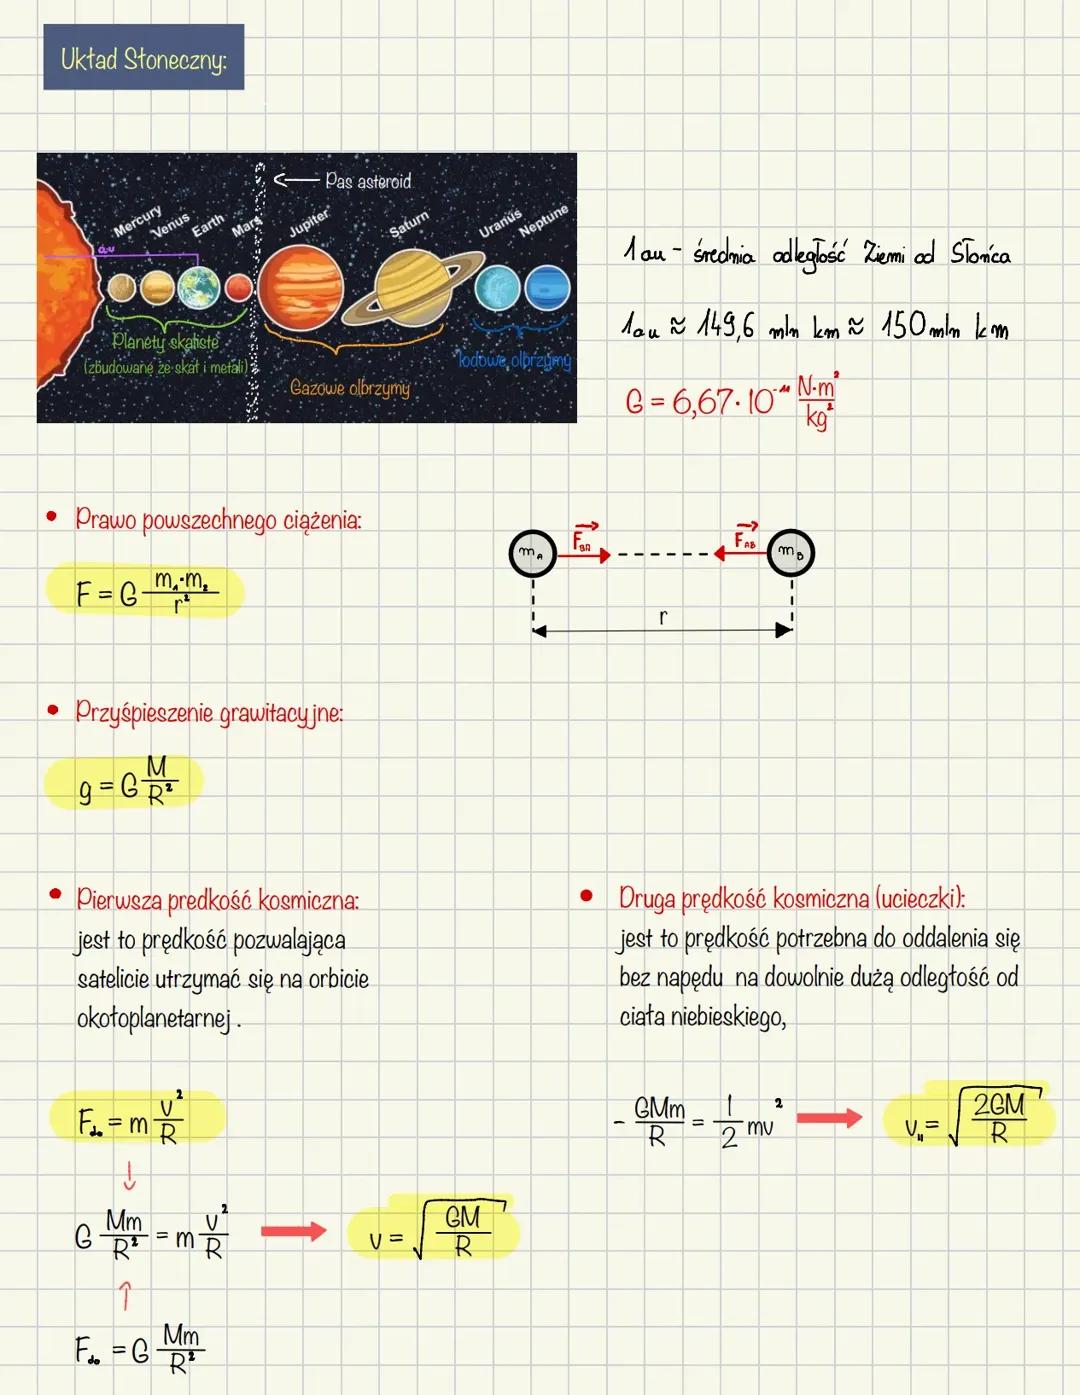 Układ Słoneczny:
Pas asteroid
Mercury Venus Earth Mars Jupiter Saturn Uranus Neptune
au
Planety skaliste
(zbudowane ze skał i metali)
Gazowe olbrzymy
lodowe olbrzymy
1 au - średnia odległość Ziemi od Słońca
1 au ≈ 149,6 mln km ≈ 150 mln km
G = 6,67·10⁻¹¹ N·m²/kg²
• Prawo powszechnego ciążenia:
F = G m₁·m₂/r²
m_A F_BA F_AB m_B
r
• Przyśpieszenie grawitacyjne:
g = G M/R²
• Pierwsza predkość kosmiczna:
jest to prędkość pozwalająca
satelicie utrzymać się na orbicie
okołoplanetarnej.
F_do = m v²/R
G Mm/R² = m v²/R → v = √(GM/R)
F_do = G Mm/R²
• Druga prędkość kosmiczna (ucieczki):
jest to prędkość potrzebna do oddalenia się
bez napędu na dowolnie dużą odległość od
ciała niebieskiego,
- GMm/R = 1/2 mv² → v_II = √(2GM/R)